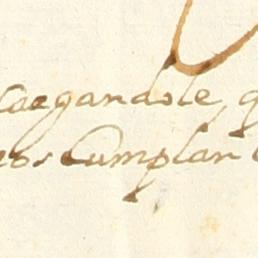 cargandole, q
nos cumplan